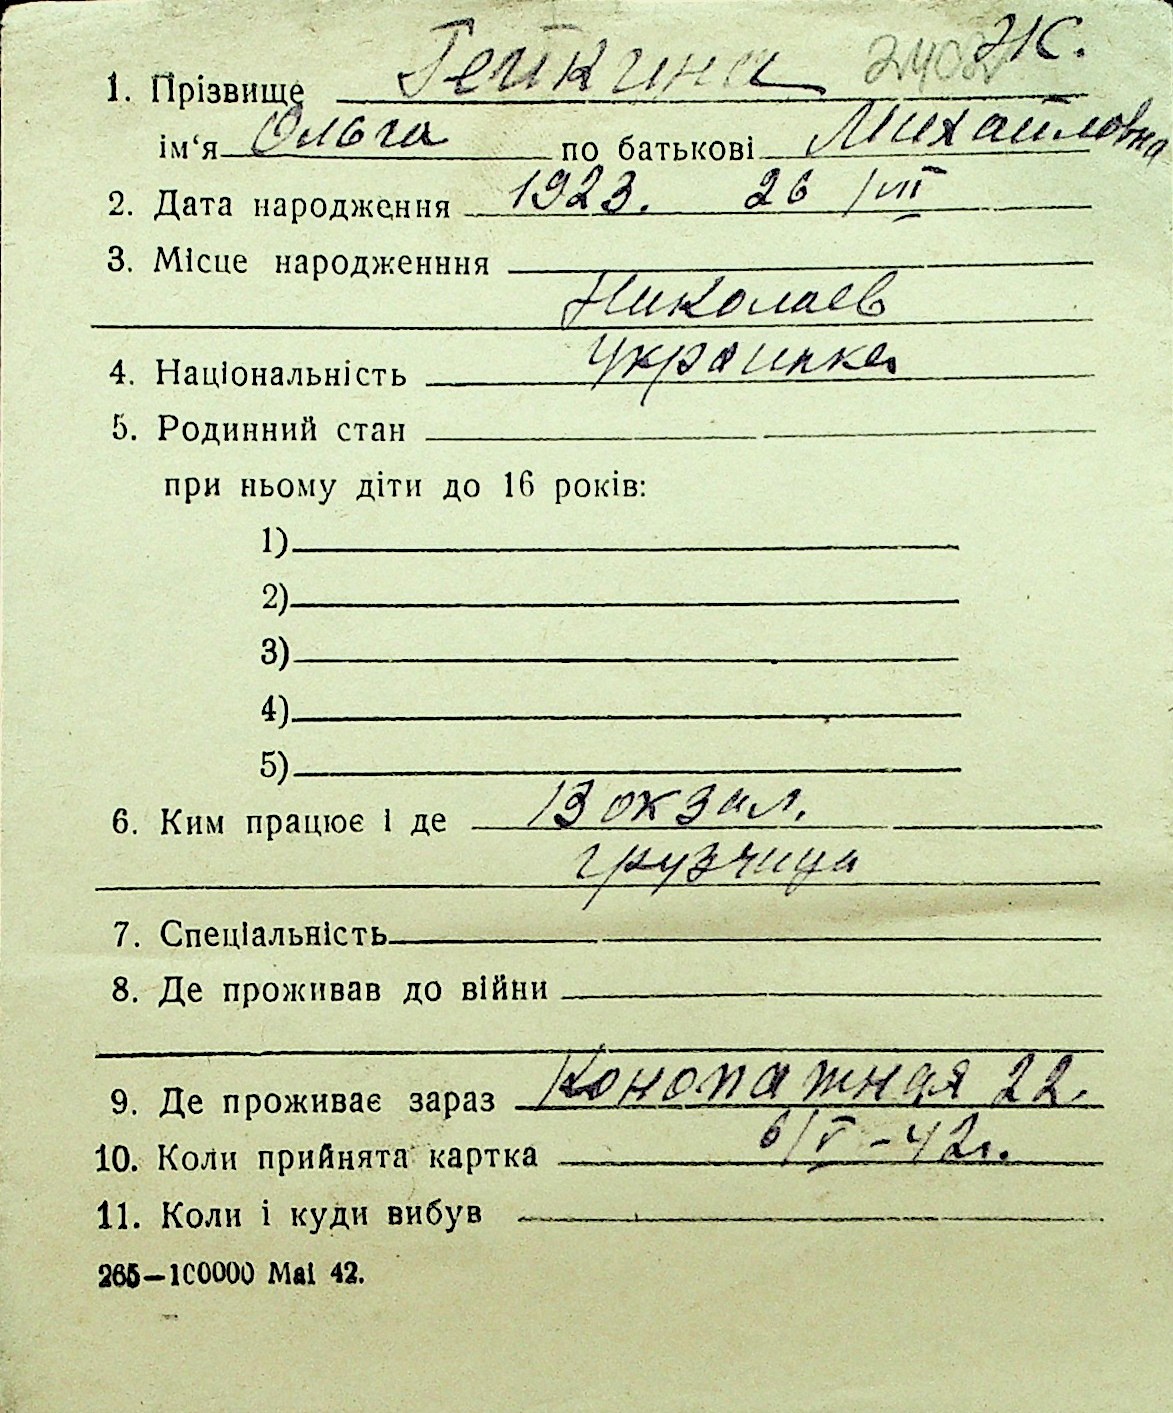 1. Прізвище Гейкина 2402 Ж.
ім‘я Ольга по батькові Михайловна
2. Дата народження 1923. 26/VII
3. Місце народженння
Николаев
4. Національність украинка
5. Родинний стан
при ньому діти до 16 років:
1)
2)
3)
4)
5)
6. Ким працює і де Вокзал.
грузчица
7. Спеціальність
8. Де проживав до війни
9. Де проживає зараз Конопатная 22.
10. Коли прийнята картка 6/V-42г.
11. Коли і куди вибув
265—100000 Mai 42.